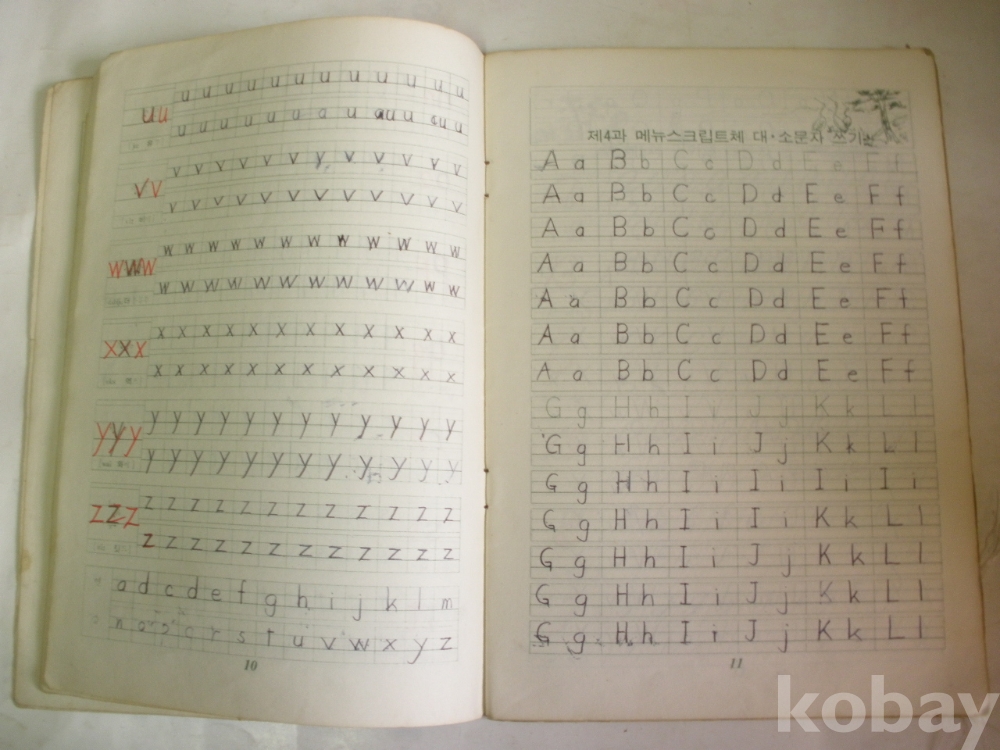 u u u u u u u u u u u u
uu
u u u u u u a u au u u u
v v v v v v v v v v v v
vv
v v v v v v v v v v v v
w w w w w w w w w w w w
www
w w w w w w w w w w w w
x x x x x x x x x x x x
xxx
x x x x x x x x x x x x
y y y y y y y y y y y y
yyy
y y y y y y y y y y y y
z z z z z z z z z z z z
zzz
z z z z z z z z z z z z
a d c d e f g h i j k l m
n o r s t u v w x y z
10
제4과 메뉴스크립트체 대·소문자 쓰기
A a B b C c D d E e F f
A a B b C c D d E e F f
A a B b C c D d E e F f
A a B b C c D d E e F f
A a B b C c D d E e F f
A a B b C c D d E e F f
A a B b C c D d E e F f
G g H h I i J j K k L l
G g H h I i J j K k L l
G g H h I i I i I i I i
G g H h I i I i K k L l
G g H h I i J j K k L l
G g H h I i J j K k L l
G g H h I i J j K k L l
11
kobay